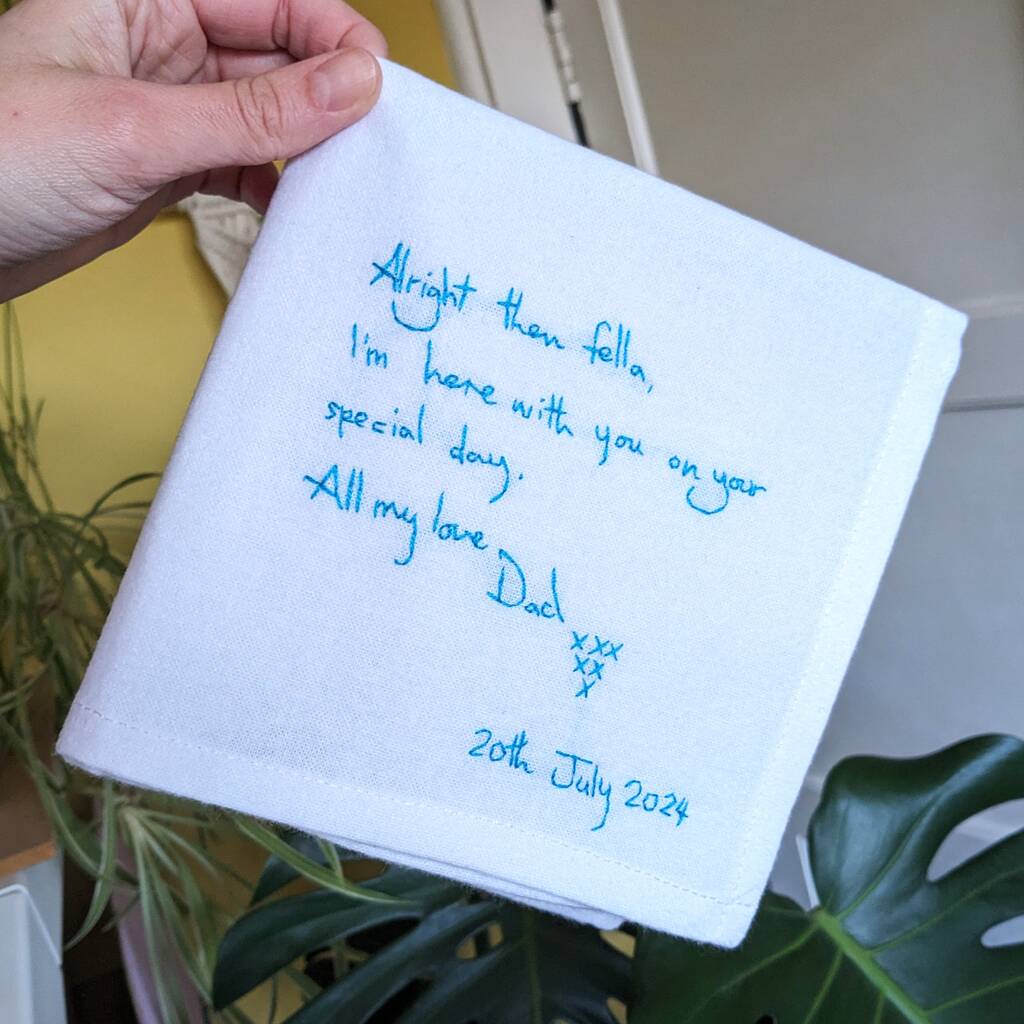 Alright then fella,
I'm here with you on your
special day.
All my love
Dad
xxx
xx
x
20th July 2024